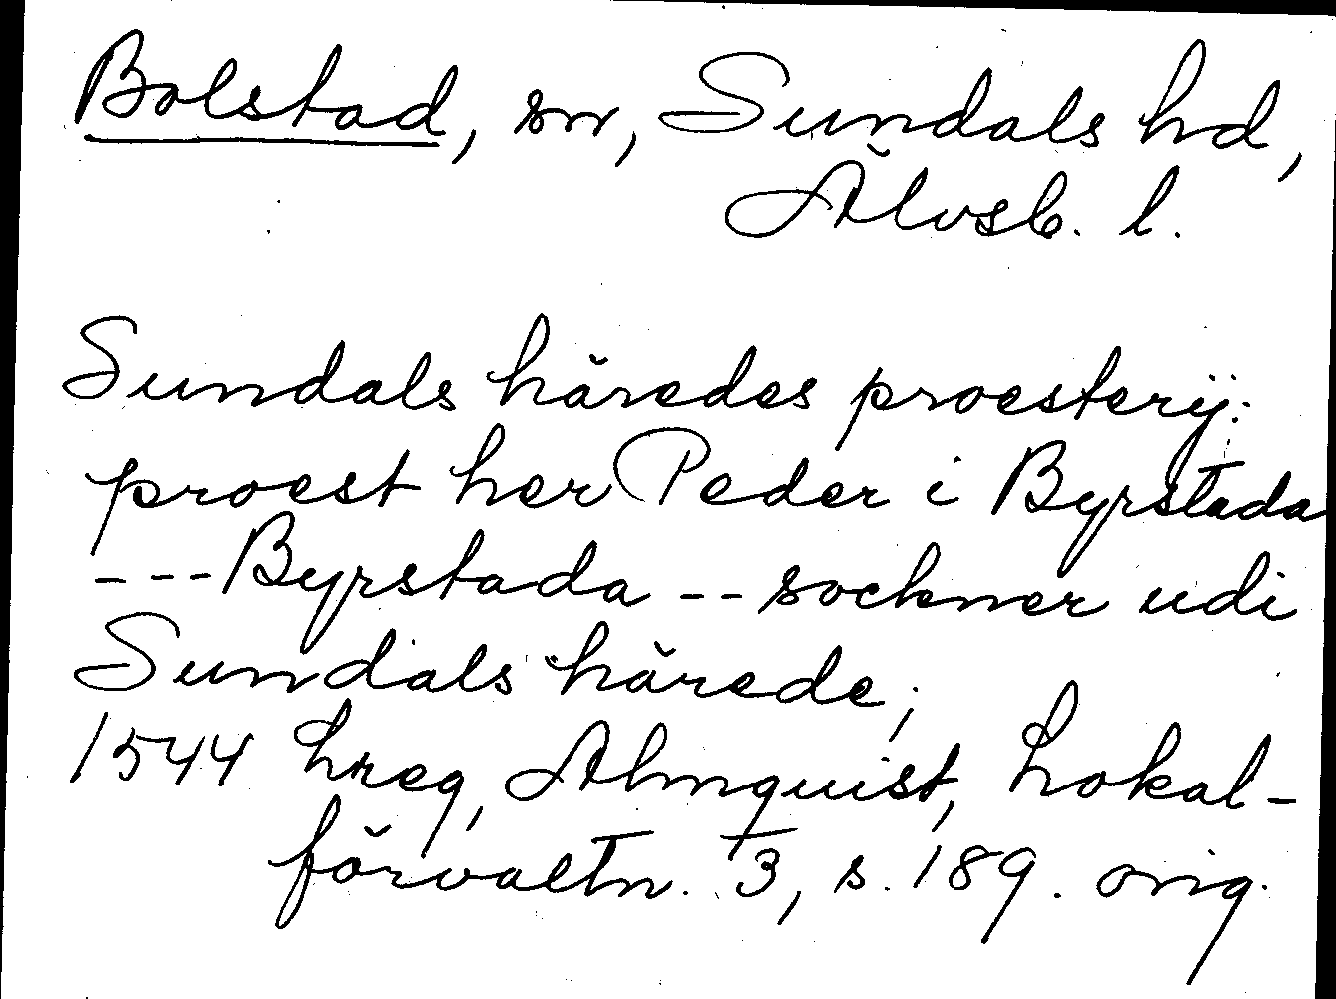 Bolstad, sn, Sundals hd,
Älvsb. l.
Sundals häredes proesterij:
proest her Peder i Byrstada
---Byrstada -- sockner udi
Sundals härede;
1544 hreg, Almquist, Lokal-
förvaltn. 3, s. 189. orig.